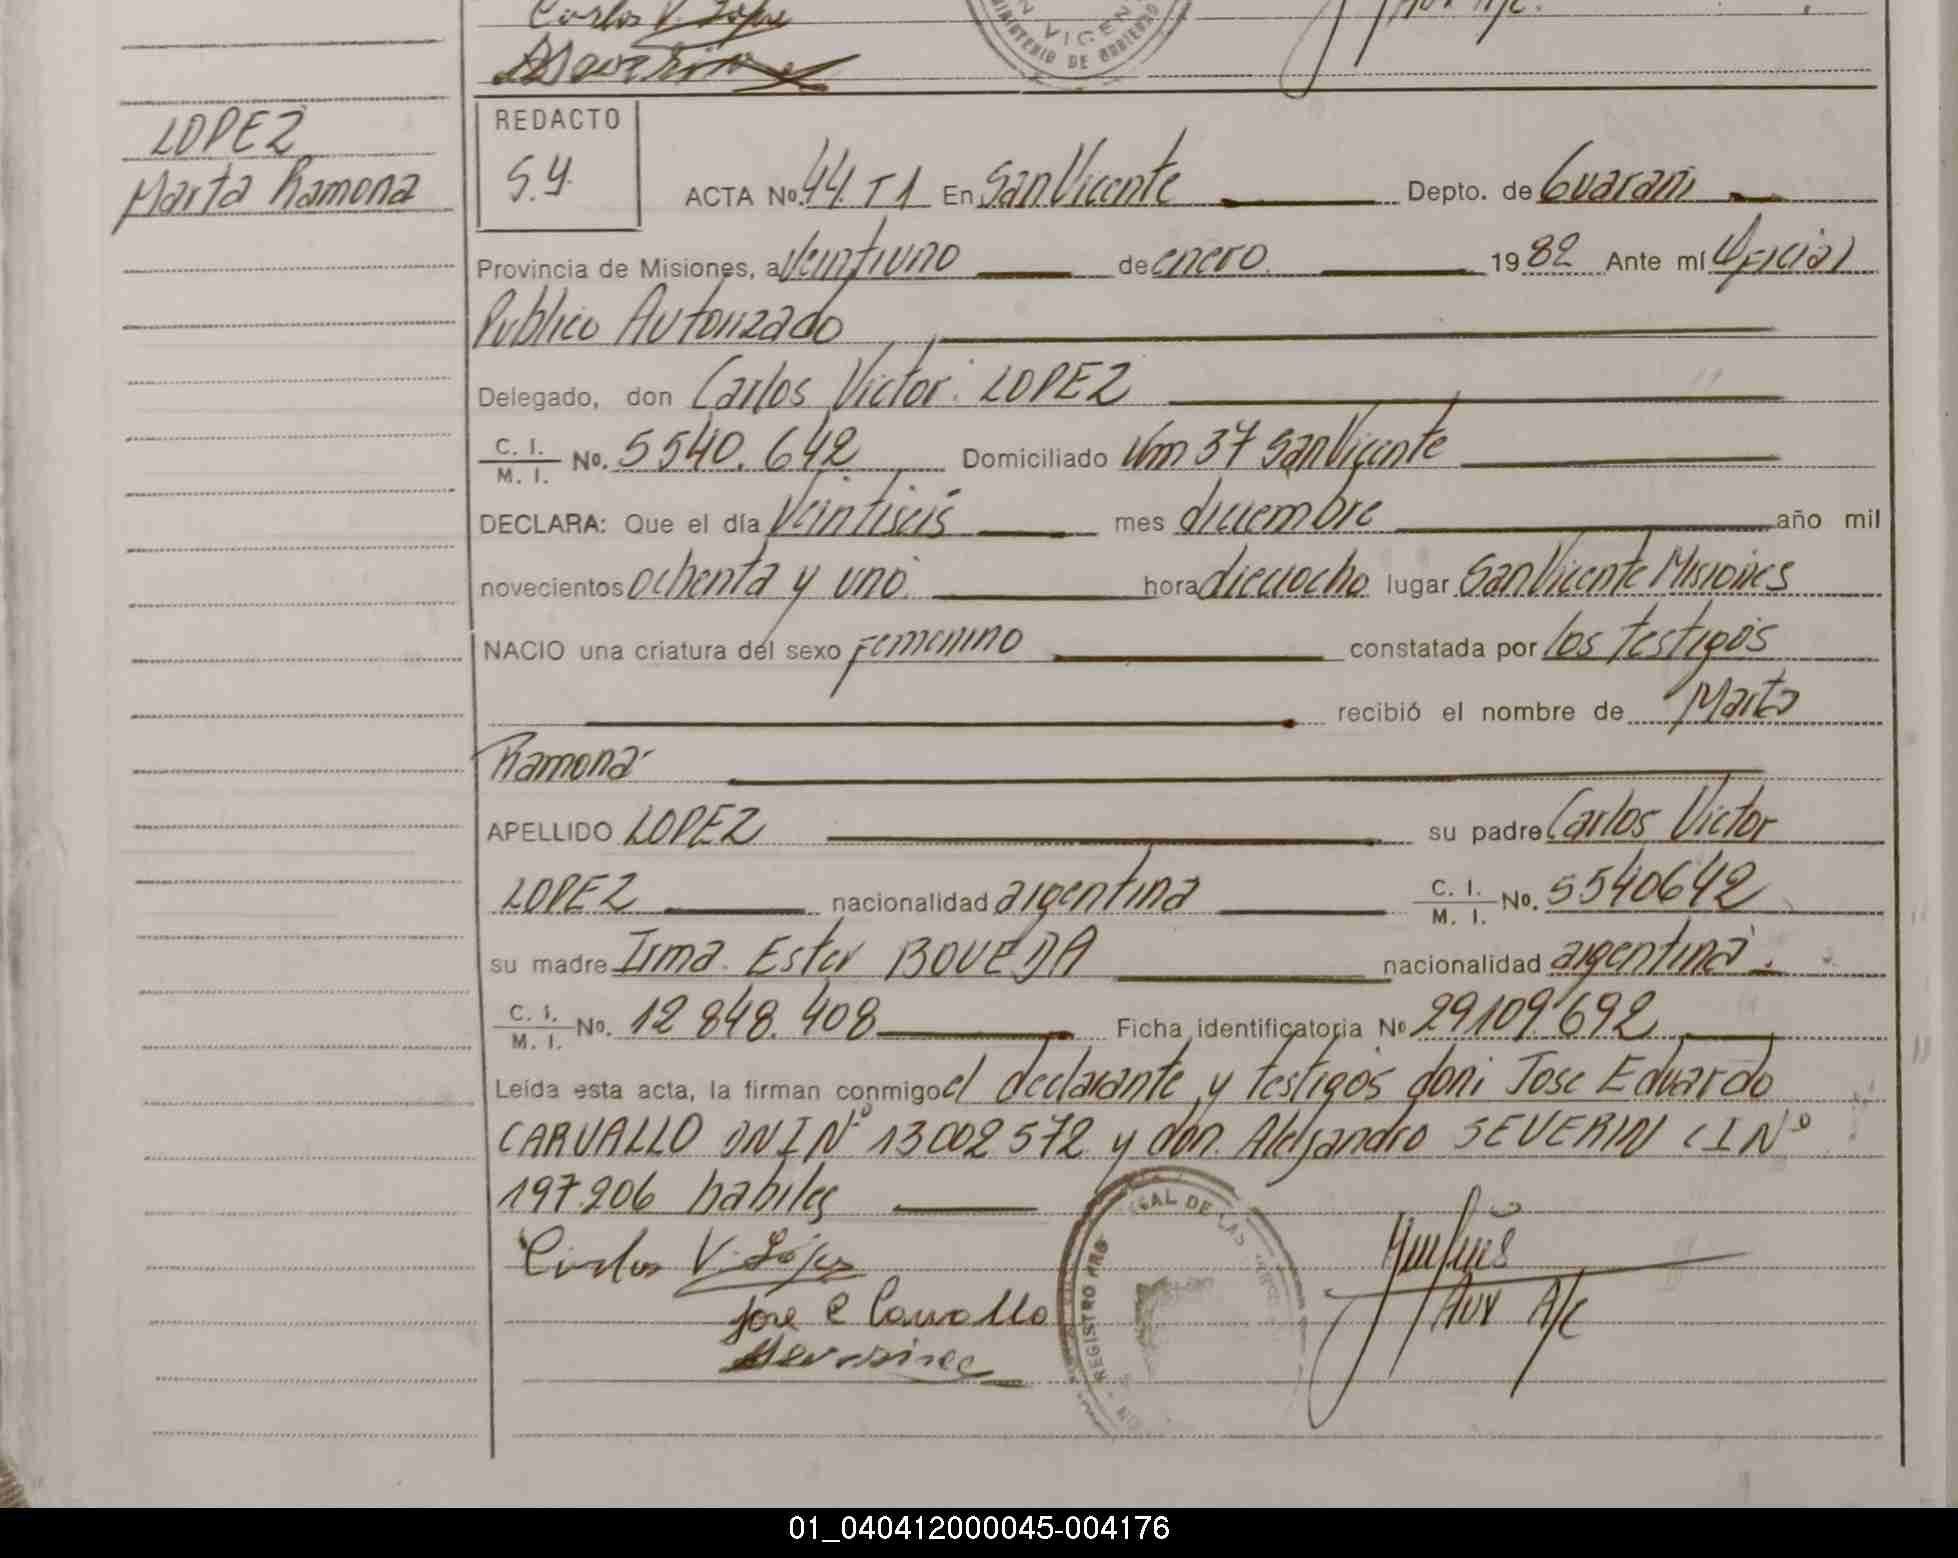 Carlos V. López
N VICEN
MINISTERIO DE GOBIERNO
Aux A/c.
LOPEZ
Marta Ramona
REDACTO
S.Y.
ACTA No. 44. T 1 En San Vicente Depto. de Guarani
Provincia de Misiones, a Veintiuno de enero 1982 Ante mí Oficial
Publico Autorizado
Delegado, don Carlos Victor LOPEZ
C. I. / M. I. No. 5540.642 Domiciliado Km 37 San Vicente
DECLARA: Que el día Veintiseis mes diciembre año mil
novecientos ochenta y uno. hora dieciocho lugar San Vicente Misiones
NACIO una criatura del sexo Femenino constatada por los testigos
recibió el nombre de Marta
Ramona
APELLIDO LOPEZ su padre Carlos Victor
LOPEZ nacionalidad argentina C. I. / M. I. No. 5540642
su madre Irma Ester BOVEDA nacionalidad argentina.
C. I. / M. I. No. 12 848.408 Ficha identificatoria No 29109.692
Leída esta acta, la firman conmigo el declarante y testigos don: Jose Eduardo
CARVALLO DNI Nº 13002572 y don Alejandro SEVERIN CI Nº
197.206 habiles
Carlos V. López
Jose E Carvallo
REGISTRO PRO
AL DE LAS
Aux A/c
01_040412000045-004176